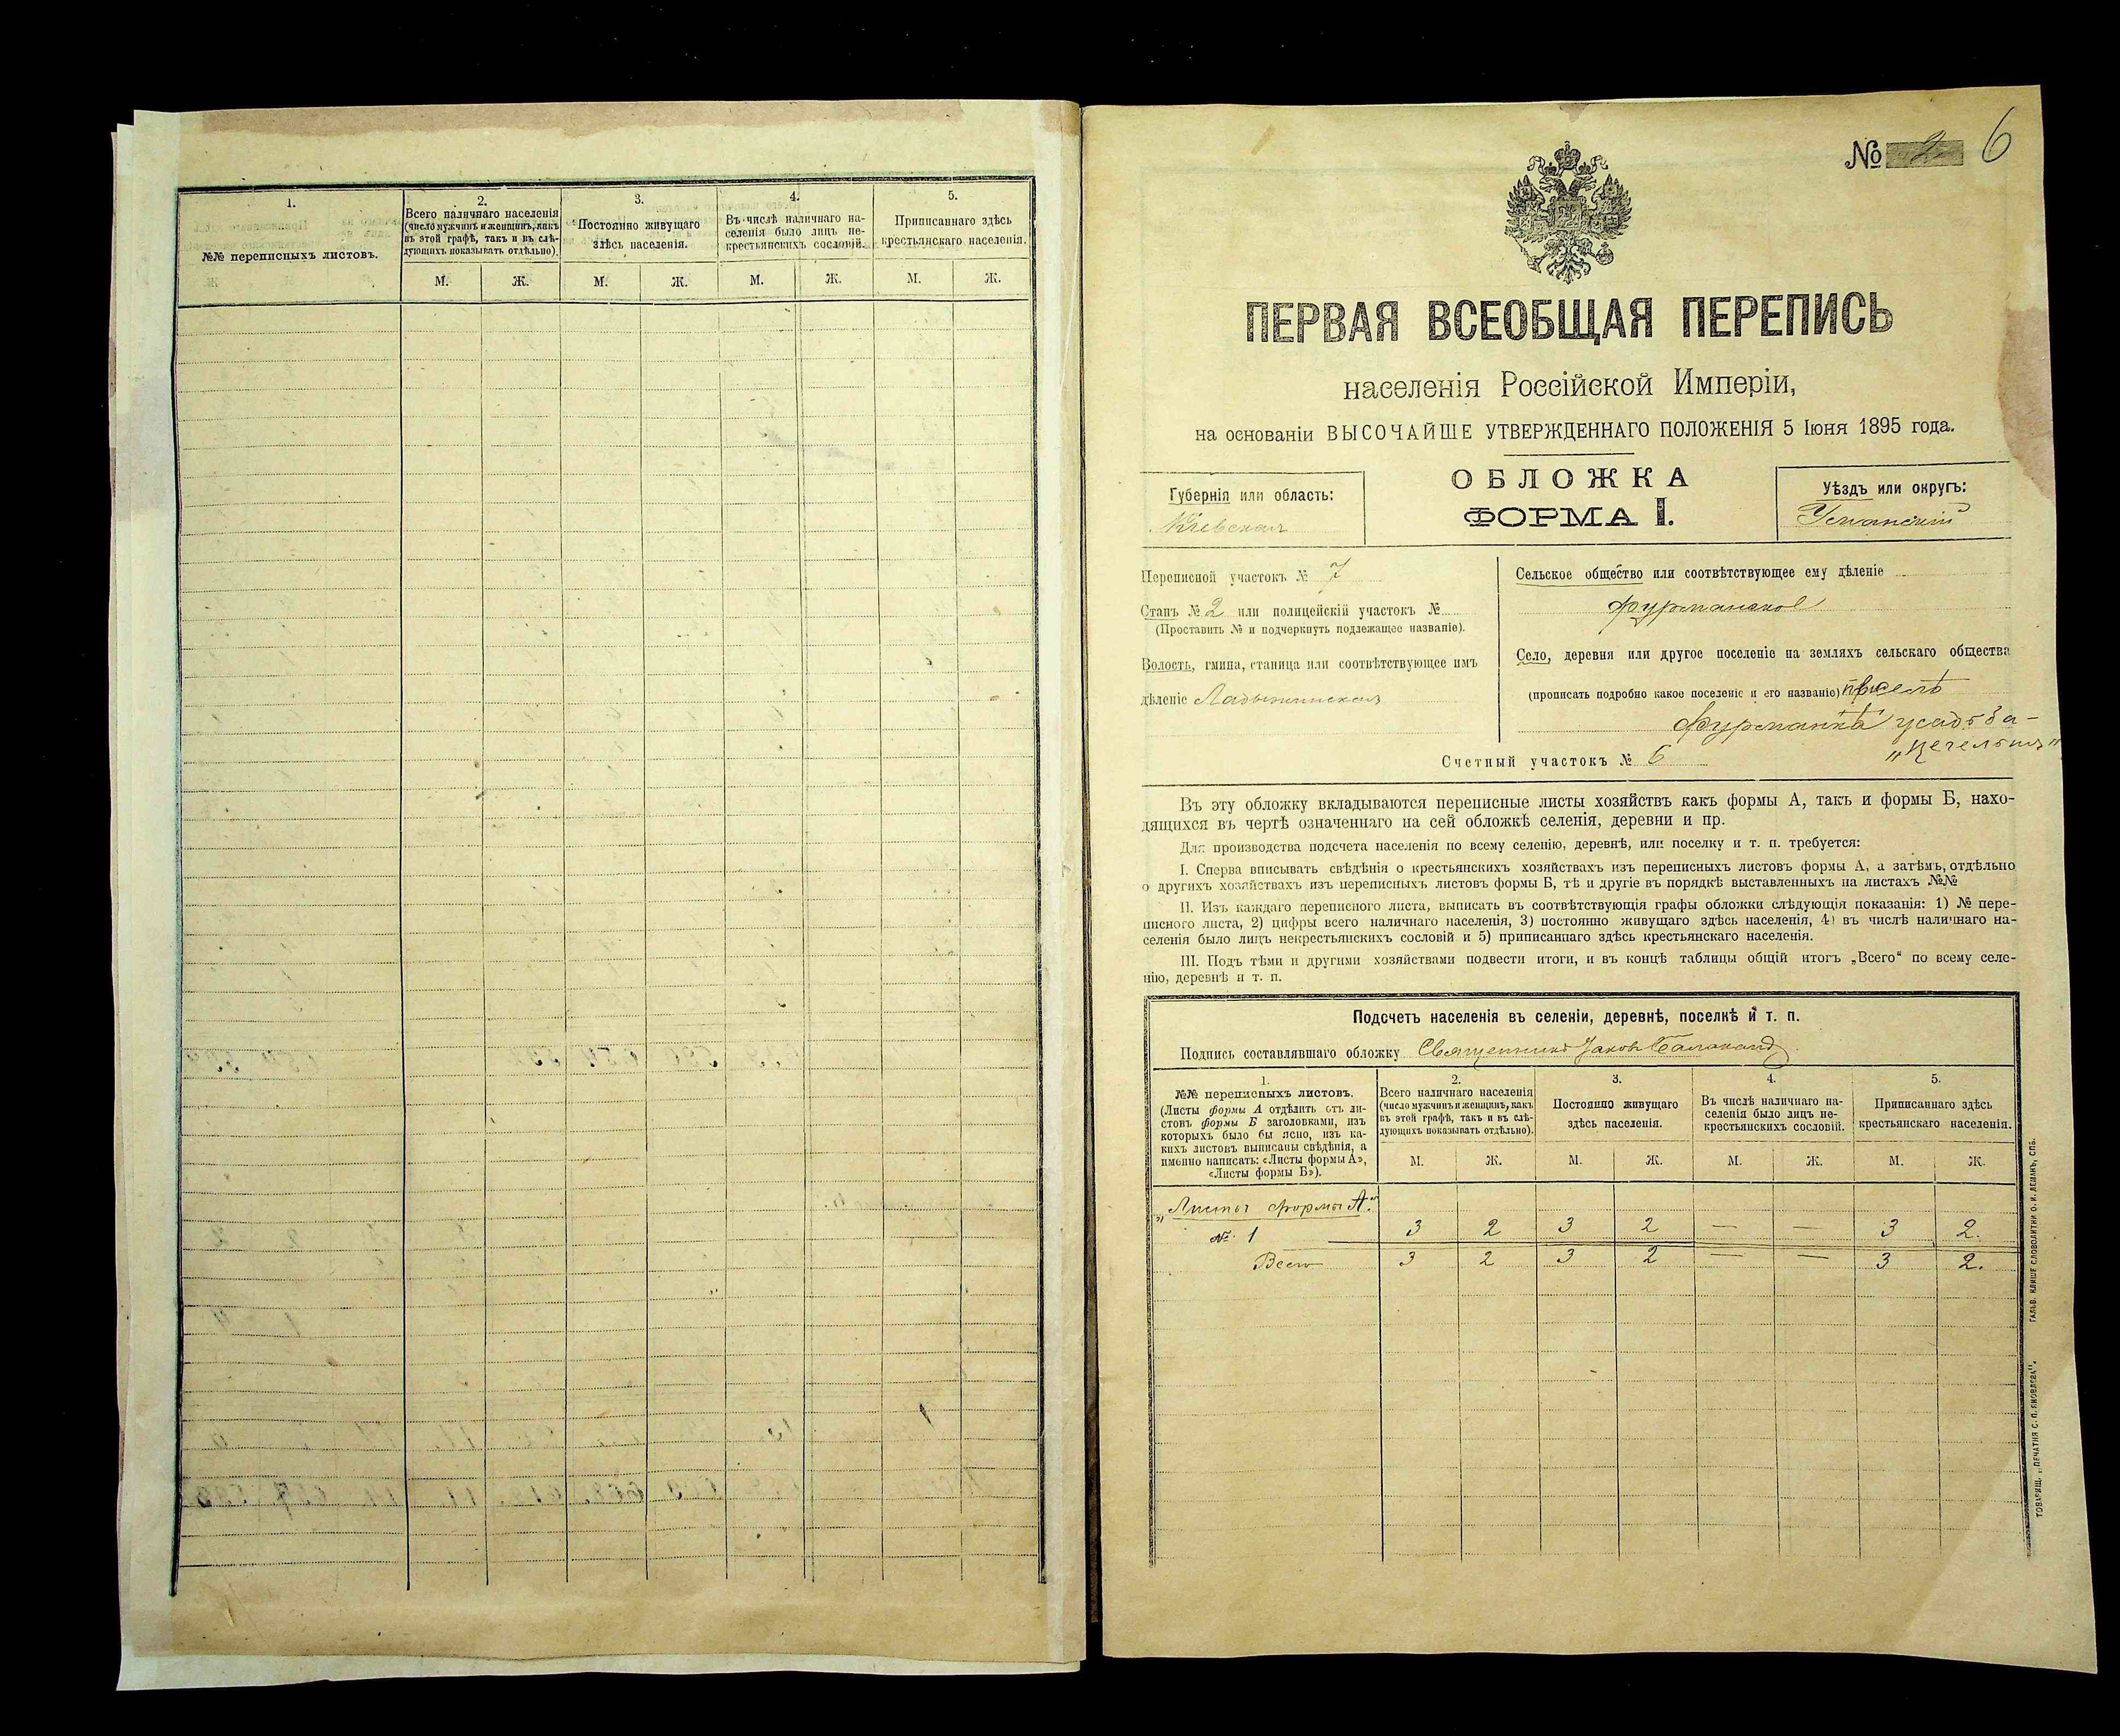 1.
№№ переписныхъ листовъ.
2.
Всего наличнаго населенія
(число мужчинъ и женщинъ, какъ
въ этой графѣ, такъ и въ слѣ-
дующихъ показывать отдѣльно).
3.
Постоянно живущаго
здѣсь населенія.
4.
Въ числѣ наличнаго на-
селенія было лицъ не-
крестьянскихъ сословій.
5.
Приписаннаго здѣсь
крестьянскаго населенія.
М. Ж. М. Ж. М. Ж. М. Ж.
№ 2 6
ПЕРВАЯ ВСЕОБЩАЯ ПЕРЕПИСЬ
населенія Россійской Имперіи,
на основаніи ВЫСОЧАЙШЕ УТВЕРЖДЕННАГО ПОЛОЖЕНІЯ 5 Іюня 1895 года.
Губернія или область:
Кіевская
ОБЛОЖКА
ФОРМА I.
Уѣздъ или округъ:
Уманскій
Переписной участокъ № 7
Станъ № 2 или полицейскій участокъ №
(Проставить № и подчеркнуть подлежащее названіе).
Волость, гмина, станица или соотвѣтствующее имъ
дѣленіе Ладыжинская
Сельское общество или соотвѣтствующее ему дѣленіе
Фурманское
Село, деревня или другое поселеніе на земляхъ сельскаго общества
(прописать подробно какое поселеніе и его названіе) при селѣ
Фурманкѣ усадьба-
Счетный участокъ № 6
Въ эту обложку вкладываются переписные листы хозяйствъ какъ формы А, такъ и формы Б, нахо-
дящихся въ чертѣ означеннаго на сей обложкѣ селенія, деревни и пр.
Для производства подсчета населенія по всему селенію, деревнѣ, или поселку и т. п. требуется:
I. Сперва вписывать свѣдѣнія о крестьянскихъ хозяйствахъ изъ переписныхъ листовъ формы А, а затѣмъ, отдѣльно
о другихъ хозяйствахъ изъ переписныхъ листовъ формы Б, тѣ и другіе въ порядкѣ выставленныхъ на листахъ №№
II. Изъ каждаго переписного листа, выписать въ соотвѣтствующія графы обложки слѣдующія показанія: 1) № пере-
писного листа, 2) цифры всего наличнаго населенія, 3) постоянно живущаго здѣсь населенія, 4) въ числѣ наличнаго на-
селенія было лицъ некрестьянскихъ сословій и 5) приписаннаго здѣсь крестьянскаго населенія.
III. Подъ тѣми и другими хозяйствами подвести итоги, и въ концѣ таблицы общій итогъ „Всего“ по всему селе-
нію, деревнѣ и т. п.
Подсчетъ населенія въ селеніи, деревнѣ, поселкѣ и т. п.
Подпись составлявшаго обложку Священникъ Іаковъ
1.
№№ переписныхъ листовъ.
(Листы формы А отдѣлить отъ ли-
стовъ формы Б заголовками, изъ
которыхъ было бы ясно, изъ ка-
кихъ листовъ выписаны свѣдѣнія, а
именно написать: «Листы формы А»,
«Листы формы Б»).
2.
Всего наличнаго населенія
(число мужчинъ и женщинъ, какъ
въ этой графѣ, такъ и въ слѣ-
дующихъ показывать отдѣльно).
3.
Постоянно живущаго
здѣсь населенія.
4.
Въ числѣ наличнаго на-
селенія было лицъ не-
крестьянскихъ сословій.
5.
Приписаннаго здѣсь
крестьянскаго населенія.
М. Ж. М. Ж. М. Ж. М. Ж.
„Листы формы А."
№ 1 3 2 3 2 — — 3 2.
Всего 3 2 3 2 — — 3 2.
ТОВАРИЩ. „ПЕЧАТНЯ С. П. ЯКОВЛЕВА“. ГАЛЬВ. КЛИШЕ СЛОВОЛИТНИ О. И. ЛЕМАНЪ, СПБ.